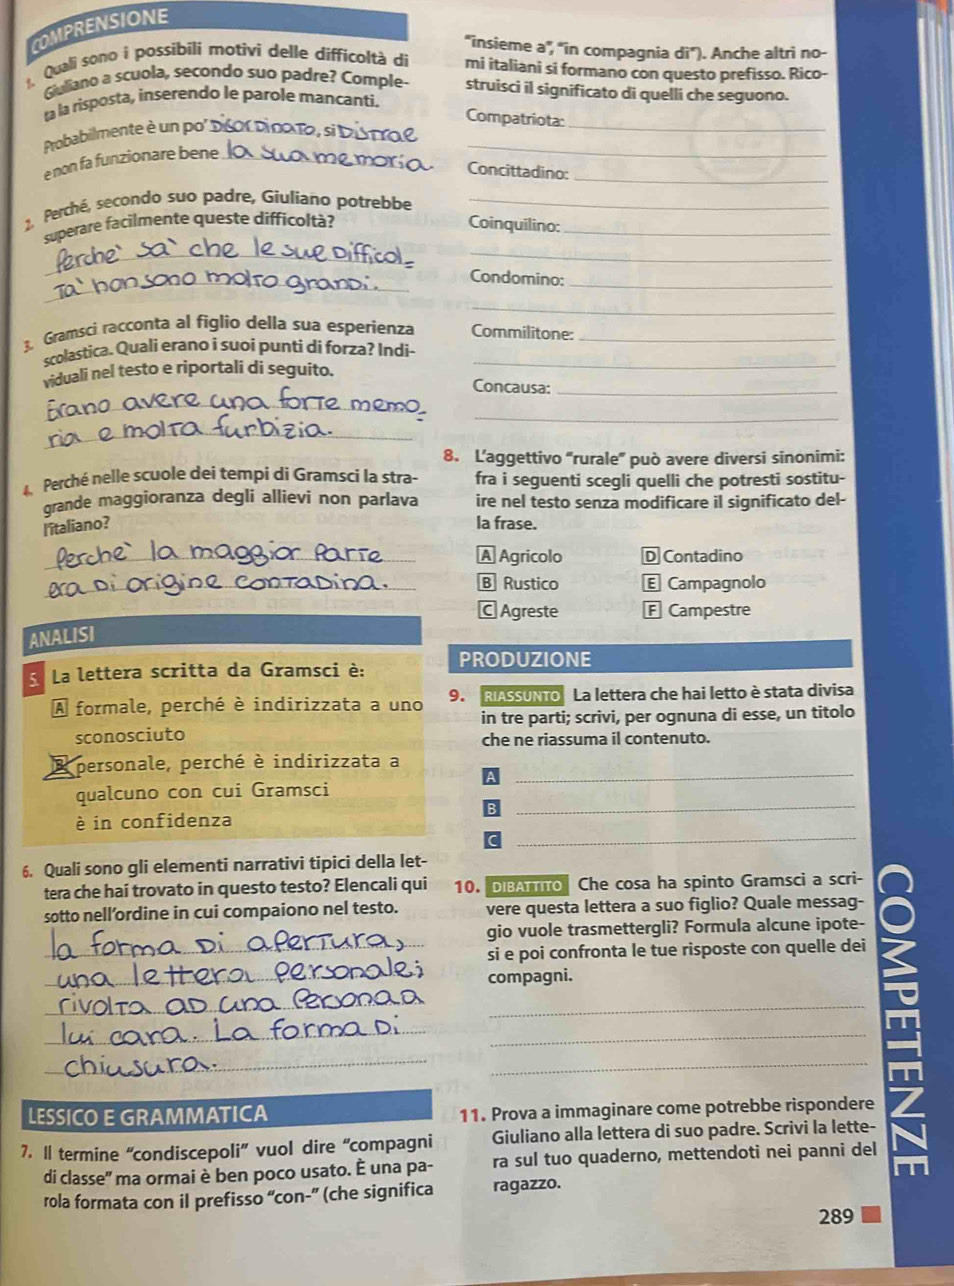 COMPRENSIONE
1. Quali sono i possibili motivi delle difficoltà di
Giuliano a scuola, secondo suo padre? Comple-
ta la risposta, inserendo le parole mancanti.
Probabilmente è un po' DisorDinaTo, si DisTrae
e non fa funzionare bene la sua memoria.
2. Perché, secondo suo padre, Giuliano potrebbe
superare facilmente queste difficoltà?
Perche' sa' che le sue Difficol=
Ta' non sono molTo granDi.
3. Gramsci racconta al figlio della sua esperienza
scolastica. Quali erano i suoi punti di forza? Indi-
viduali nel testo e riportali di seguito.
Erano avere una forTe memo=
ria e molTa furbizia.
4. Perché nelle scuole dei tempi di Gramsci la stra-
grande maggioranza degli allievi non parlava
l'italiano?
Perche' la maggior ParTe
era Di origine conTaDina.
ANALISI
5. La lettera scritta da Gramsci è:
A formale, perché è indirizzata a uno
sconosciuto
B personale, perché è indirizzata a
qualcuno con cui Gramsci
è in confidenza
6. Quali sono gli elementi narrativi tipici della let-
tera che hai trovato in questo testo? Elencali qui
sotto nell'ordine in cui compaiono nel testo.
la forma Di aPerTura,
una lettera Personale;
rivolTa aD una Persona a
lui cara. La forma Di
chiusura.
LESSICO E GRAMMATICA
7. Il termine "condiscepoli" vuol dire "compagni
di classe" ma ormai è ben poco usato. È una pa-
rola formata con il prefisso "con-" (che significa
"insieme a", "in compagnia di"). Anche altri no-
mi italiani si formano con questo prefisso. Rico-
struisci il significato di quelli che seguono.
Compatriota:
Concittadino:
Coinquilino:
Condomino:
Commilitone:
Concausa:
8. L'aggettivo "rurale" può avere diversi sinonimi:
fra i seguenti scegli quelli che potresti sostitu-
ire nel testo senza modificare il significato del-
la frase.
A Agricolo D Contadino
B Rustico E Campagnolo
C Agreste F Campestre
PRODUZIONE
9. RIASSUNTO La lettera che hai letto è stata divisa
in tre parti; scrivi, per ognuna di esse, un titolo
che ne riassuma il contenuto.
A
B
C
10. DIBATTITO Che cosa ha spinto Gramsci a scri-
vere questa lettera a suo figlio? Quale messag-
gio vuole trasmettergli? Formula alcune ipote-
si e poi confronta le tue risposte con quelle dei
compagni.
11. Prova a immaginare come potrebbe rispondere
Giuliano alla lettera di suo padre. Scrivi la lette-
ra sul tuo quaderno, mettendoti nei panni del
ragazzo.
COMPETENZE
289